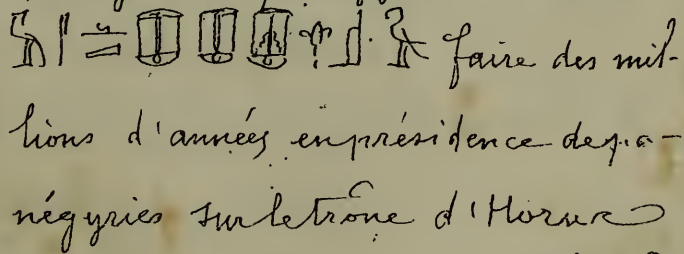 faire des mil-
lions d'années en présidence de pa-
négyries sur le trône d'Horus